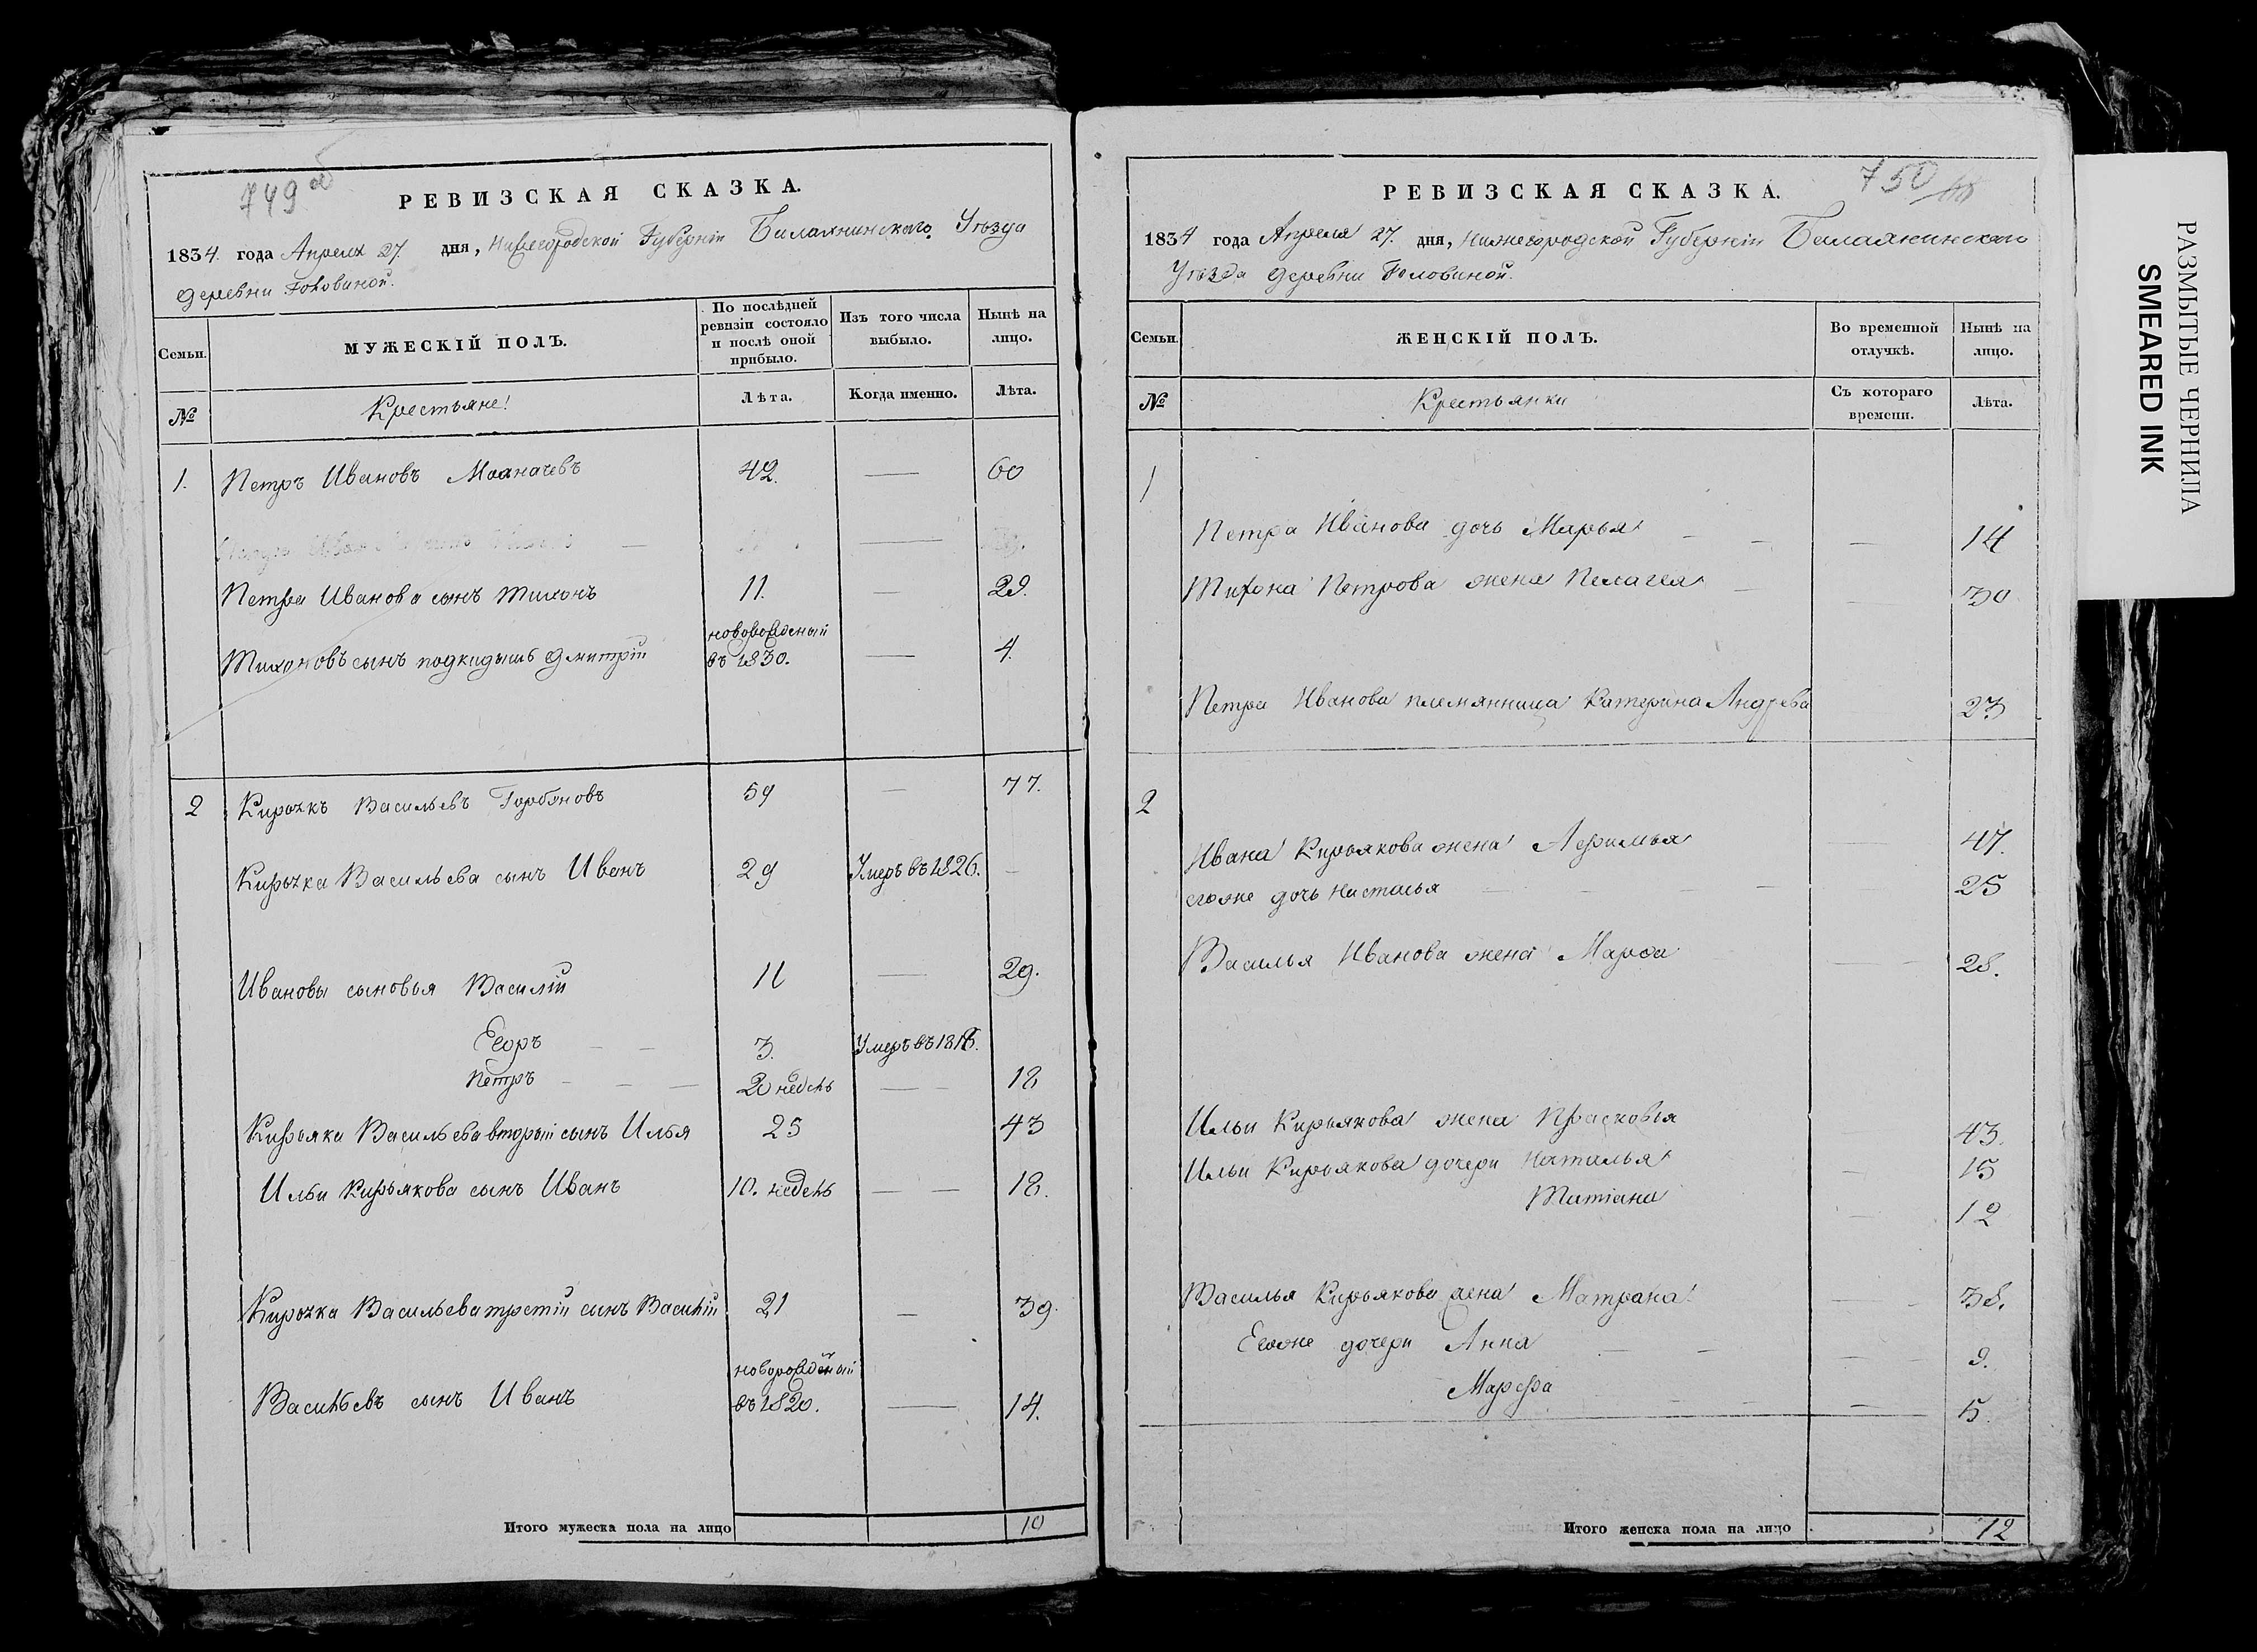 749 об
РЕВИЗСКАЯ СКАЗКА.
1834 года Апреля 27. дня, Нижегородской Губерніи Балахнинскаго Уѣзда
деревни Головиной.
Семьи. МУЖЕСКІЙ ПОЛЪ. По послѣдней ревизіи состояло и послѣ оной прибыло. Изъ того числа выбыло. Нынѣ на лицо.
№ Крестьяне Лѣта. Когда именно. Лѣта.
1. Петръ Ивановъ 42. — 60
Петра Иванова сынъ Тихонъ 11. — 29.
Тихоновъ сынъ подкидышь Дмитрій новорожденный въ 1830. — 4.
2 Кирьякъ Васильевъ Горбуновъ 59 — 77.
Кирьяка Васильева сынъ Иванъ 29 Умеръ въ 1826. —
Ивановы сыновья Василій 11 — 29.
Егоръ — — 3. Умеръ въ 1816.
Петръ — — — 20 недель — — 18
Кирьяка Васильева вторый сынъ Илья 25 43
Ильи Кирьякова сынъ Иванъ 10. недель — — 18.
Кирьяка Васильева третій сынъ Василій 21 — 39.
Васильевъ сынъ Иванъ новорожденый въ 1820. — 14.
Итого мужеска пола на лицо 10
750
РЕВИЗСКАЯ СКАЗКА.
1834 года Апреля 27. дня, Нижегородской Губерніи Балахнинскаго
Уѣзда деревни Головиной.
Семьи. ЖЕНСКІЙ ПОЛЪ. Во временной отлучкѣ. Нынѣ на лицо.
№ Крестьянки Съ котораго времени. Лѣта.
1
Петра Иванова дочь Марья — — — 14
Тихона Петрова жена Пелагея — — 30
Петра Иванова племянница Катерина Андрева 23
2
Ивана Кирьякова жена Афимья — 47.
егоже дочь Настасья — — — — 25
Василья Иванова жена Марѳа — — 28.
Ильи Кирьякова жена Прасковья — 43.
Ильи Кирьякова дочери Наталья — 15
Татіана — 12
Василья Кирьякова жена Матрена — — 38.
Егоже дочери Анна — — — — 9.
Марфа — — — 5.
Итого женска пола на лицо 12
РАЗМЫТЫЕ ЧЕРНИЛА
SMEARED INK